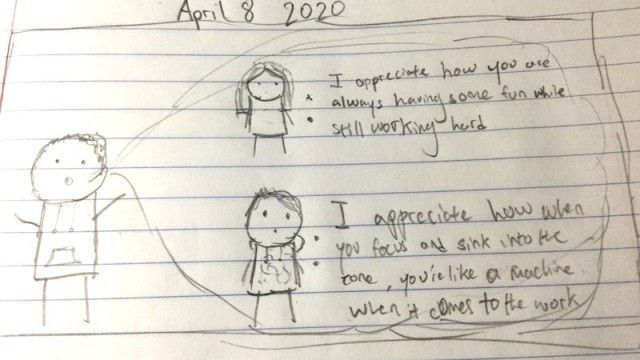 April 8 2020
I appreciate how you are
always having some fun while
still working hard
I appreciate how when
you focus and sink into the
zone, you're like a machine
when it comes to the work